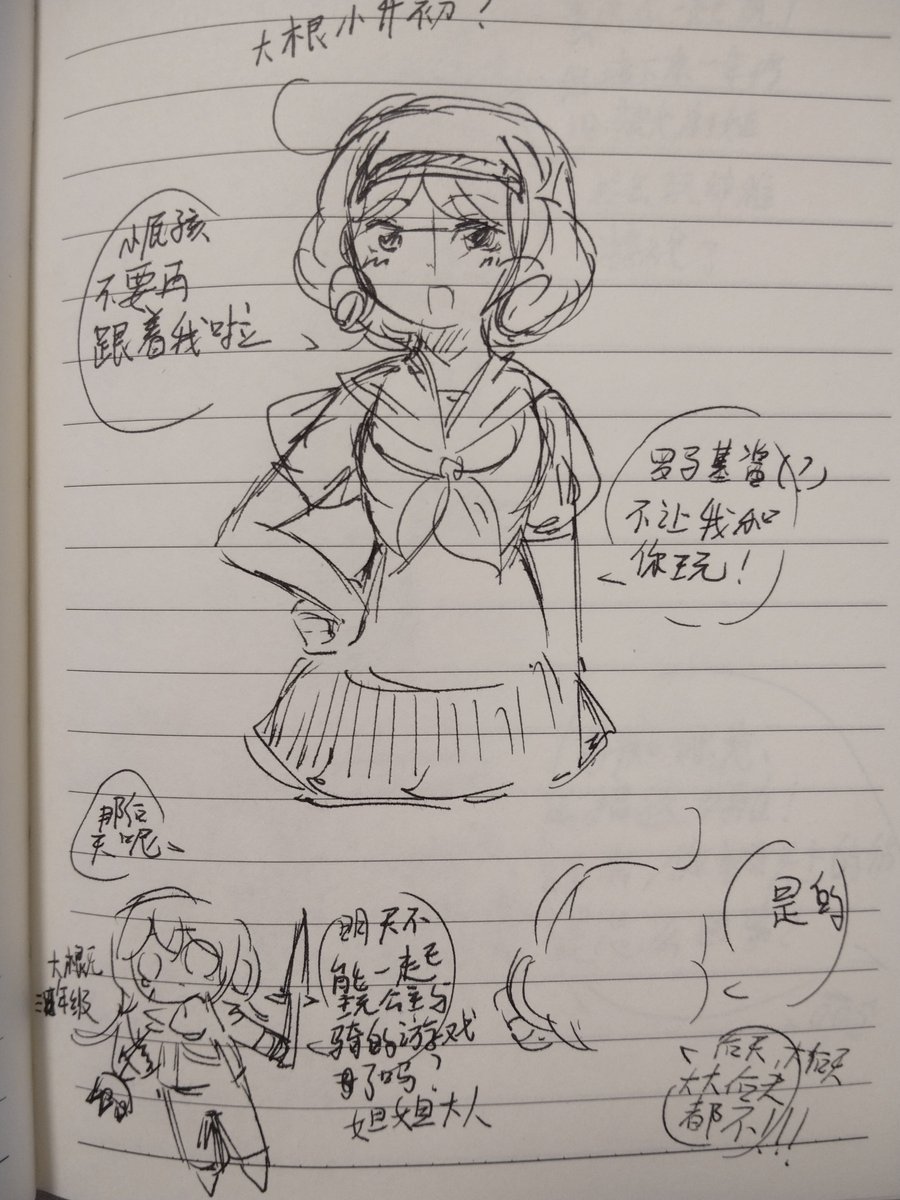 大根小升初！
小屁孩
不要再
跟着我啦
罗子基酱(?)
不让我和
你玩！
那后
天呢
是的
明天不
能一起
玩公主与
骑的游戏
了吗？
姐姐大人
大根
年级
后天,大后天
大大后天
都不!!!